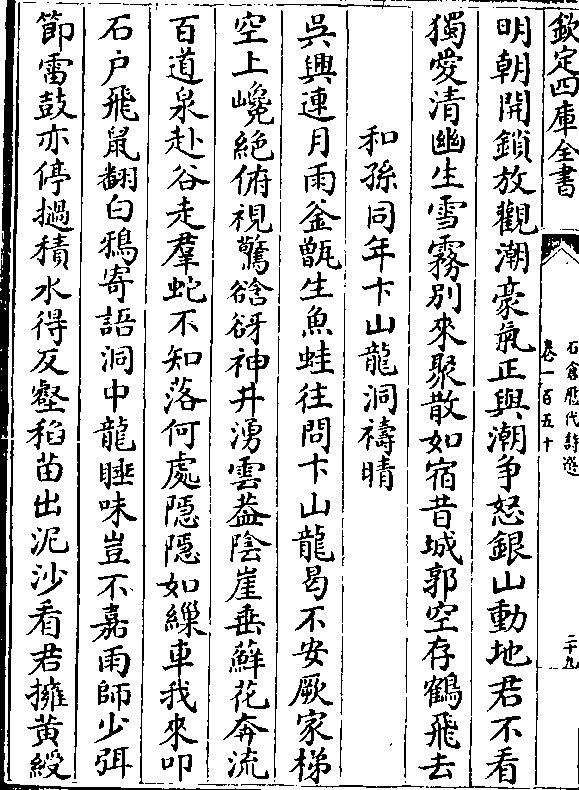 欽定四庫全書
石倉歷代詩選
卷一百五十
二十九
明朝開鎖放觀潮豪氣正與潮争怒銀山動地君不看
獨愛清幽生雪霧别來聚散如宿昔城郭空存鶴飛去
和孫同年卞山龍洞禱晴
吳興連月雨釡甑生魚蛙往問卞山龍曷不安厥家梯
空上巉絶俯視驚谽谺神井湧雲葢陰崖垂蘚花奔流
百道泉赴谷走羣蛇不知落何處隠隠如繰車我來叩
石户飛鼠翻白鴉寄語洞中龍睡味豈不嘉雨師少弭
節雷鼓亦停撾積水得反壑稻苗出泥沙看君擁黄綬